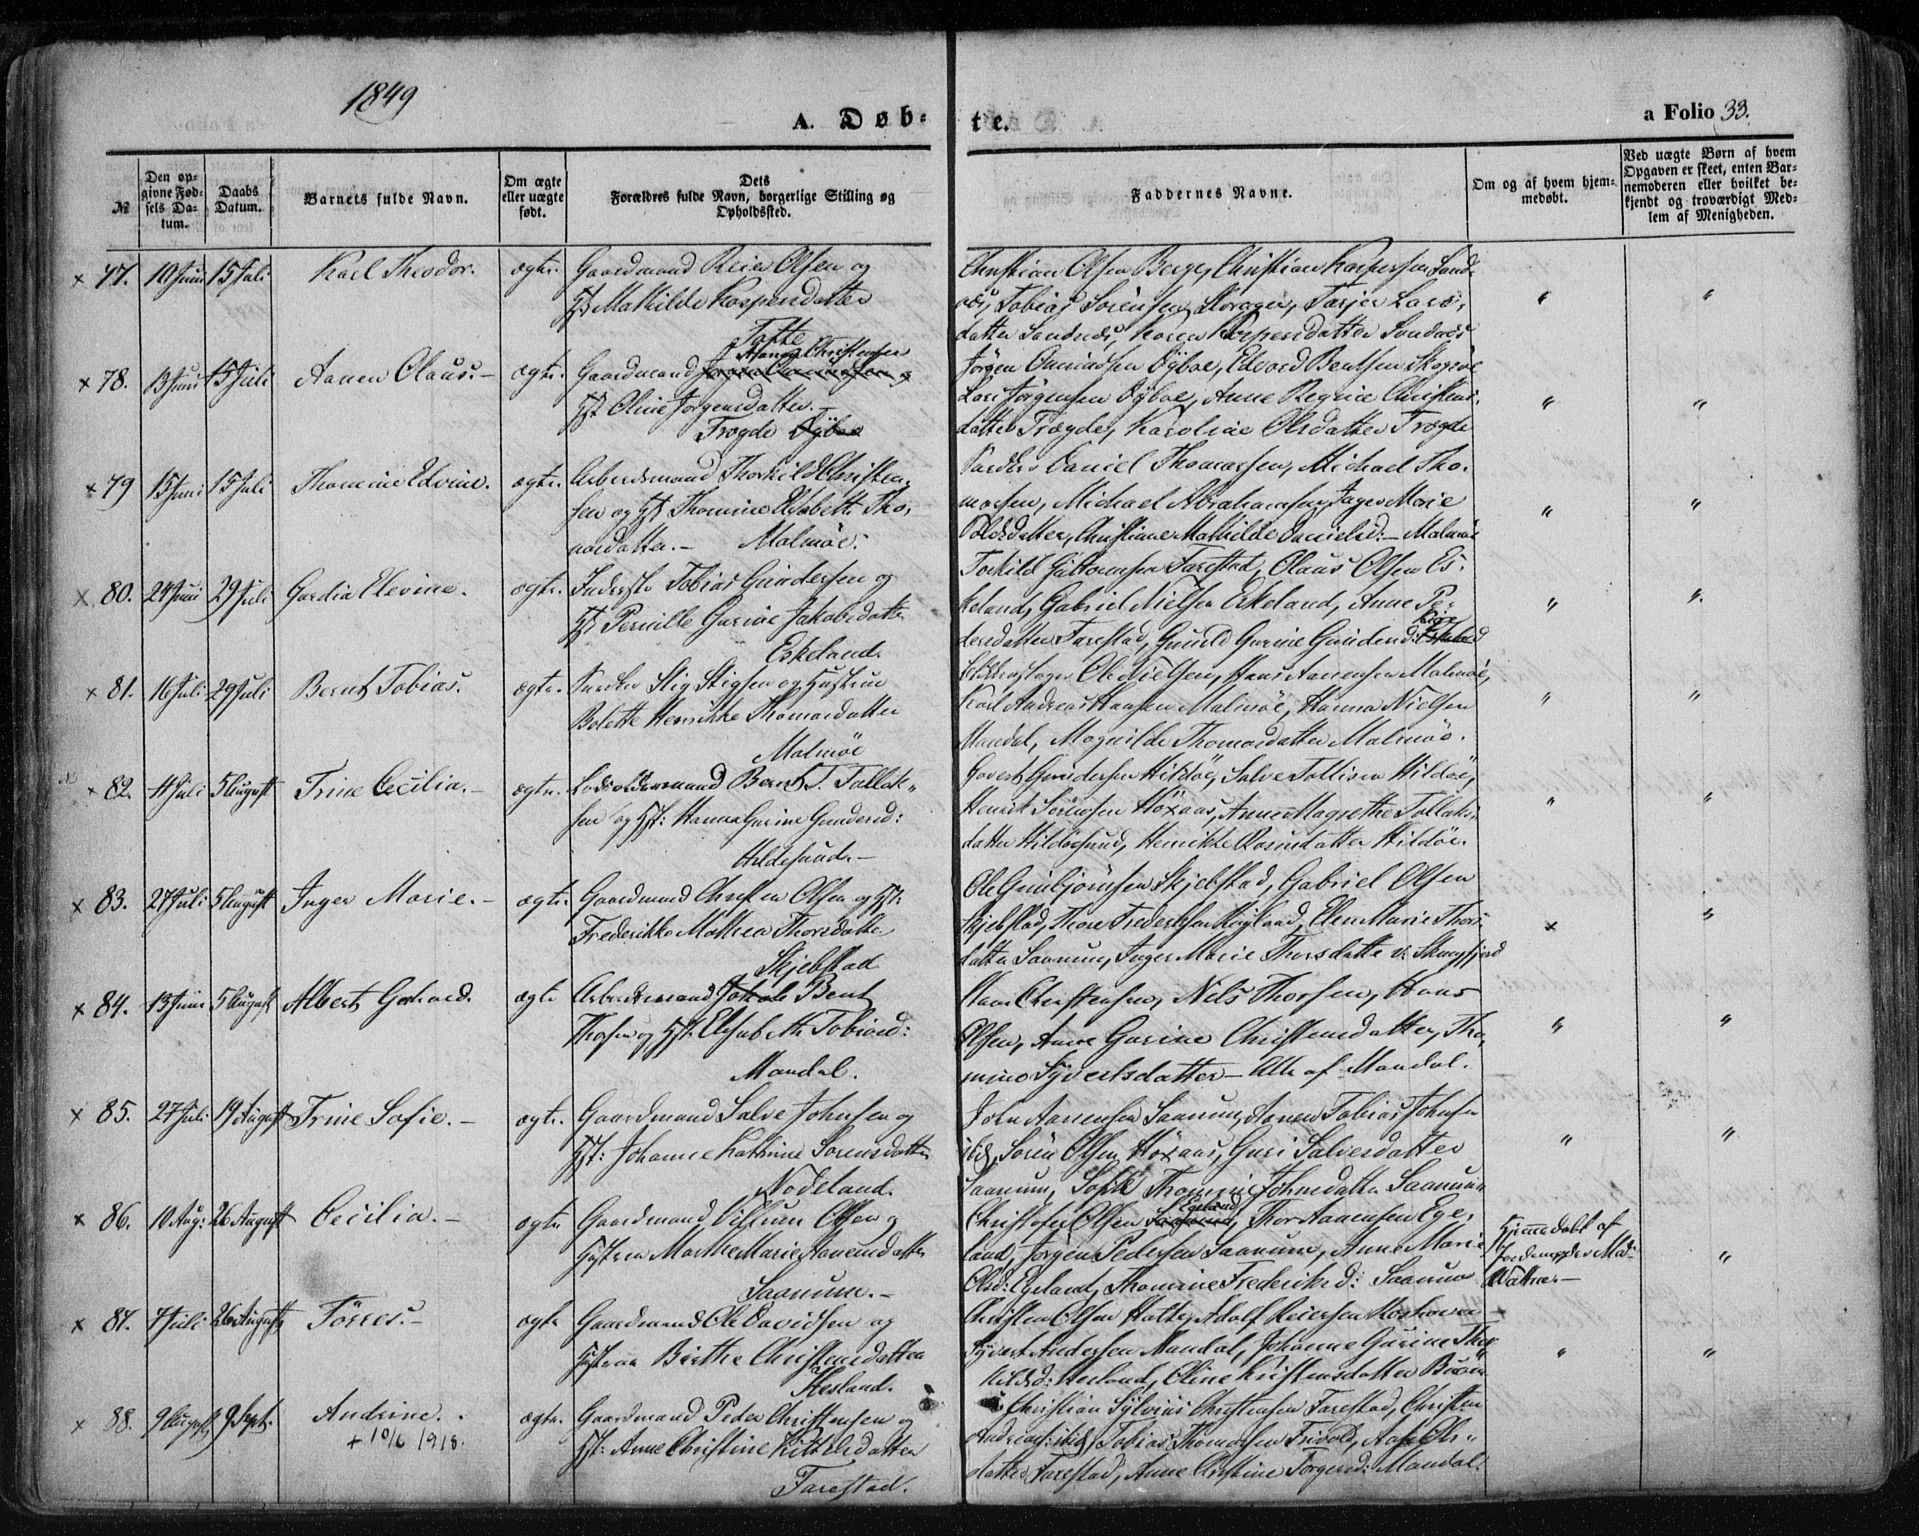 1849
A. Døb-
te.
a Folio 33.
№
Den op-
givne Fød-
sels Da-
tum.
Daabs
Datum.
Barnets fulde Navn.
Om ægte
eller uægte
født.
Dets
Forældres fulde Navn, borgerlige Stilling og
Opholdssted.
Faddernes Navne.
Om og af hvem hjem-
medøbt.
Ved uægte Børn af hvem
Opgaven er skeet, enten Bar-
nemoderen eller hvilket be-
kjendt og troværdigt Med-
lem af Menigheden.
× 77. 10 Juni 15 Juli Karl Theodor. ægte. Gaardmand Reier Olsen og
Hst Mathilde Kaspersdatter
Christian Olsen Berge, Christian Kaspersen Sand-
næs, Tobias Sørensen, Tarjer Lars-
datter Sandnæs, Karen Kaspersdatter Sandnæs
× 78. 13 Juni 15 Juli Aanen Olaus.- ægte. Gaardmand Christensen
Hst Oline Jørgensdatter.
Trøgde Dÿboe
Jørgen Dÿboe, Edvard Bentsen Skogsøe
Lars Jørgensen Dÿboe, Anne Regine Christens-
datter Trægde, Karoline Olsdatter Trøgde
× 79 15 Juni 15 Juli Thomine Edvine. ægte. Arbeidsmand Thorkild Christen-
sen og Hst Thomine Elisabeth Tho-
masdatter.- Malmøe.
Daniel Thomassen, Michael Tho-
massen, Michael Abrahamsen, Inger Marie
Christiane Mathilde Danielsd:- Malmøe
× 80. 24 Juni 29 Juli Gardia Elevine. ægte. Inderste Tobias Gundersen og
Hst Pernille Gurine Jakobsdatter
Eskeland.
Torkild Guttormsen Farestad, Olaus Olsen Es-
keland, Gabriel Nielsen Eskeland, Anne Pe-
dersdatter Farestad, Gunild Gurine Gundersd:
× 81. 16 Juli 29 Juli Bernt Tobias. ægte. Stig Stigsen og Hustrue
Bolette Henrikke Thomasdatter
Malmøe
Ole Nielsen, Hans Aanensen Malmøe,
Karl Andreas Hansen Malmøe, Hanna Nielsen
Mandal, Magnilde Thomasdatter Malmøe.
× 82. 4 Juli 5 August Trine Cecilia.- ægte. Lodsoldermand Bernt T. Tallak-
sen og Hst: Hanna Gurine Gundersd:
Hildesund.-
Govert Gundersen Hildøe, Salve Tollisen Hildøe,
Henrik Sørensen Höxaas, Anne Magrethe Tallaks-
datter Hildøesund, Henrikke datter Hildøe.
× 83. 27 Juli 5 August Inger Marie.- ægte. Gaardmand Christen Olsen og Hst:
Frederikke Mathea Thorsdatter
Skjebstad
Ole Gunbjørnsen Skjebstad, Gabriel Olsen
Skjebstad, Thore Frederiksen, Elen Marie Thors-
datter Saanum, Inger Marie Thorsdatter v: Skogsfjord
× 84. 13 Juni 5 August Albert Gerhard. ægte Arbeidsmand Jakob Bent
Thorsen og Hst: Elisabeth Tobiasd:
Mandal.
Christensen, Nils Thorsen, Hans
Olsen, Anne Gurine Christensdatter, Tho-
mine Sÿvertsdatter - Alle af Mandal.
× 85. 27 Juli 19 August Trine Sofie.- ægte. Gaardmand Salve Johnsen og
Hst: Johanne Kathrine Sørensdatter
Nodeland.
John Aanensen Saanum, Aanen Tobias Johnsen
ibid, Sören Olsen Höxaas, Guri Salvesdatter
Saanum, Thomine Johnsdatter Saanum
× 86. 10 Aug: 26 August Cecilia.- ægte Gaardmand Villum Olsen og
Hustru Marthe Marie Aanensdatter
Saanum.-
Christofer Olsen Egeland, Thor Aanensen Ege-
land, Jørgen Pedersen Saanum, Anne Marie
Olsd: Egeland, Thomine Frederiksd: Saanum
Hjemmedøbt af
Jordemoder Mad:
Wattne.-
× 87. 4 Juli 26 August Törres.- ægte Gaardmand Ole Davidsen og
Hustrue Birthe Christensdatter
Hesland.
Christen Olsen Hatte, Adolf Reiersen
Syvert Andersen Mandal, Johanne Gurine Thor-
kildsd: Hesland, Eline Kristensdatter
× 88. 9 August 9 Sept. Andrine.
+ 10/6 1918.
ægte. Gaardmand Peder Christensen og
Hst: Anne Christine Kittelsdatter
Farestad.
Christian Sÿlvius Christensen Farestad, Christen
Andreas ibid, Tobias Thomassen Frivold, Aase Ols-
datter Farestad, Anne Christine Mandal.